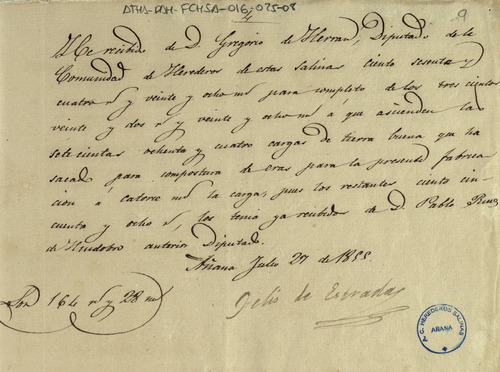 ATHA-DAH-FCHSA-016-025-08
9
He recibido de D. Gregorio de Herran, Diputado de la
Comunidad de Herederos de estas salinas ciento sesenta y
cuatro rs y veinte y ocho ms para completo de los trescientos
veinte y dos rs y veinte y ocho ms á que ascienden las
setecientas ochenta y cuatro cargas de tierra buena que ha
sacado para compostura de eras para la presente fabrica
cion á catorce ms la carga, pues los restantes ciento cin
cuenta y ocho rs, los tenia ya recibidos de D. Pablo Ruiz
de Huidobro anterior Diputado.
Añana Julio 27 de 1855.
Son 164 rs y 28 ms
Felis de
C. HEREDEROS SALINAS
AÑANA